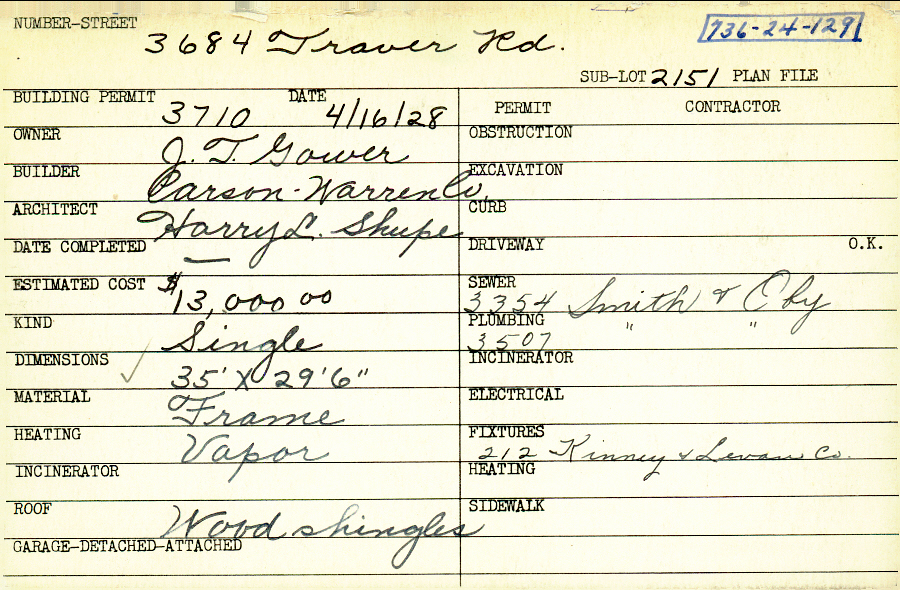 NUMBER-STREET 3684 Traver Rd. 736-24-129
SUB-LOT 2151 PLAN FILE
BUILDING PERMIT 3710 DATE 4/16/28
PERMIT CONTRACTOR
OWNER J. T. Gower
OBSTRUCTION
BUILDER Carson-Warren Co.
EXCAVATION
ARCHITECT Harry L. Shupe
CURB
DATE COMPLETED —
DRIVEWAY O.K.
ESTIMATED COST $13,000 00
SEWER 3354 Smith & Eby
KIND Single
PLUMBING 3507 " "
DIMENSIONS ✓ 35' X 29'6"
INCINERATOR
MATERIAL Frame
ELECTRICAL
HEATING Vapor
FIXTURES 212 Kinney & Levan Co.
INCINERATOR
HEATING
ROOF Wood shingles
SIDEWALK
GARAGE-DETACHED-ATTACHED